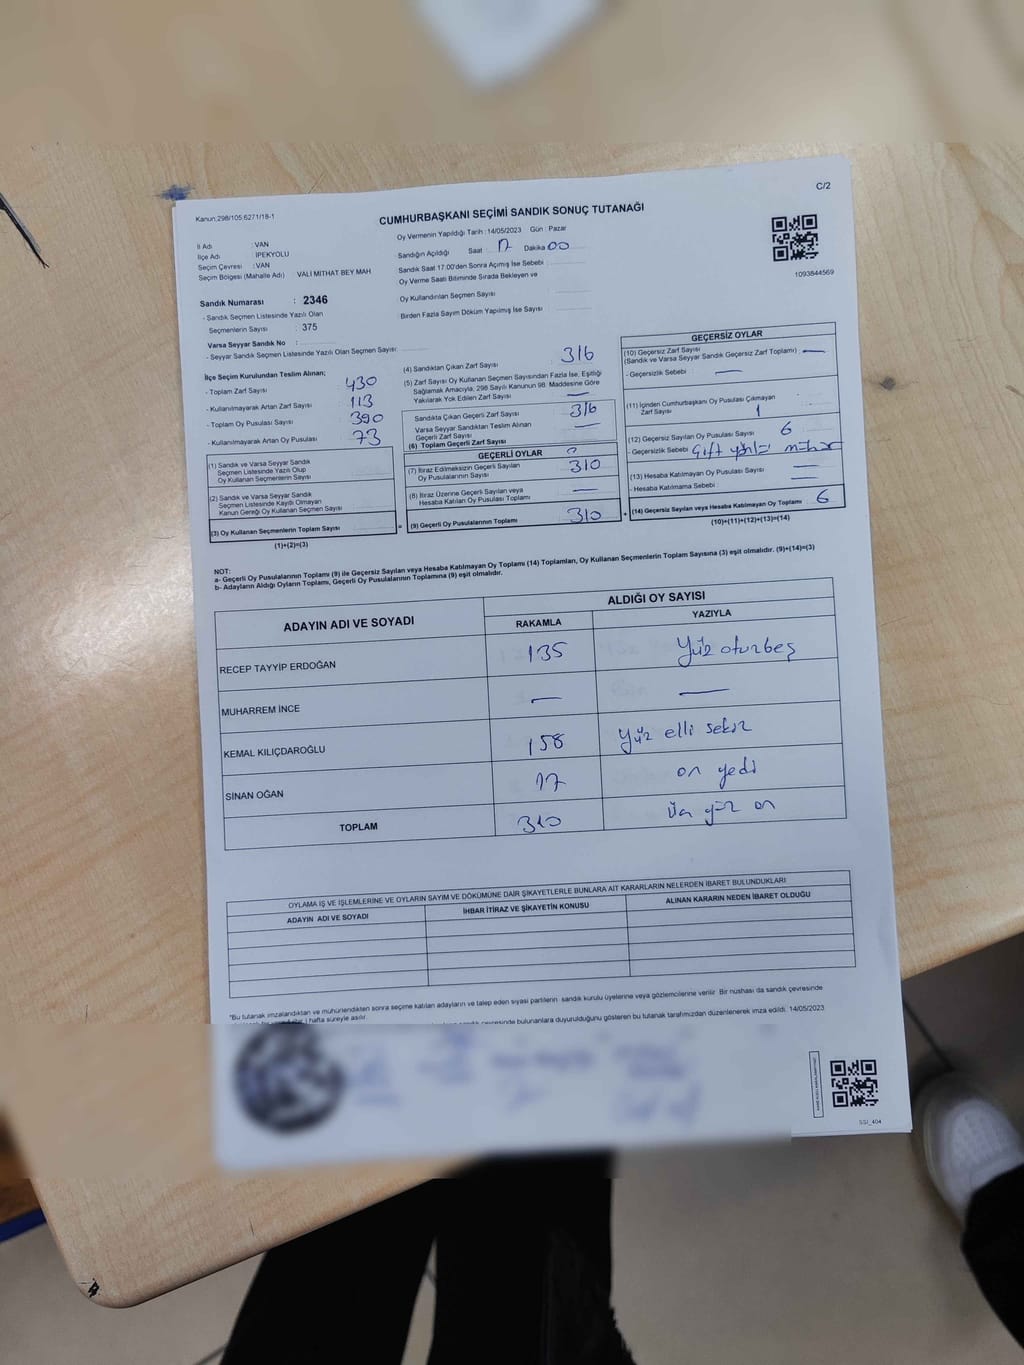 C/2
Kanun:298/105.6271/18-1
CUMHURBAŞKANI SEÇİMİ SANDIK SONUÇ TUTANAĞI
İl Adı : VAN
İlçe Adı İPEKYOLU
Seçim Çevresi : VAN
Seçim Bölgesi (Mahalle Adı) VALİ MİTHAT BEY MAH
Sandık Numarası : 2346
- Sandık Seçmen Listesinde Yazılı Olan
Seçmenlerin Sayısı : 375
Varsa Seyyar Sandık No :
- Seyyar Sandık Seçmen Listesinde Yazılı Olan Seçmen Sayısı
Oy Vermenin Yapıldığı Tarih : 14/05/2023 Gün : Pazar
Sandığın Açıldığı Saat 17 Dakika 00
Sandık Saat 17.00'den Sonra Açımış İse Sebebi :
Oy Verme Saati Bitiminde Sırada Bekleyen ve
Oy Kullandırılan Seçmen Sayısı
Birden Fazla Sayım Döküm Yapılmış İse Sayısı
1093844569
İlçe Seçim Kurulundan Teslim Alınan;
- Toplam Zarf Sayısı 430
- Kullanılmayarak Artan Zarf Sayısı 113
- Toplam Oy Pusulası Sayısı 390
- Kullanılmayarak Artan Oy Pusulası 73
(1) Sandık ve Varsa Seyyar Sandık
Seçmen Listesinde Yazılı Olup
Oy Kullanan Seçmenlerin Sayısı
(2) Sandık ve Varsa Seyyar Sandık
Seçmen Listesinde Kaydı Olmayan
Kanun Gereği Oy Kullanan Seçmen Sayısı
(3) Oy Kullanan Seçmenlerin Toplam Sayısı
(1)+(2)=(3)
(4) Sandıktan Çıkan Zarf Sayısı 316
(5) Zarf Sayısı Oy Kullanan Seçmen Sayısından Fazla İse, Eşitliği
Sağlamak Amacıyla, 298 Sayılı Kanunun 98. Maddesine Göre
Yakılarak Yok Edilen Zarf Sayısı —
Sandıkta Çıkan Geçerli Zarf Sayısı 316
Varsa Seyyar Sandıktan Teslim Alınan
Geçerli Zarf Sayısı —
(6) Toplam Geçerli Zarf Sayısı
GEÇERLİ OYLAR
(7) İtiraz Edilmeksizin Geçerli Sayılan
Oy Pusulalarının Sayısı 310
(8) İtiraz Üzerine Geçerli Sayılan veya
Hesaba Katılan Oy Pusulası Toplamı —
= (9) Geçerli Oy Pusulalarının Toplamı 310
GEÇERSİZ OYLAR
(10) Geçersiz Zarf Sayısı
(Sandık ve Varsa Seyyar Sandık Geçersiz Zarf Toplamı) : —
- Geçersizlik Sebebi
(11) İçinden Cumhurbaşkanı Oy Pusulası Çıkmayan
Zarf Sayısı 1
(12) Geçersiz Sayılan Oy Pusulası Sayısı 6
- Geçersizlik Sebebi Çift mühür
(13) Hesaba Katılmayan Oy Pusulası Sayısı —
- Hesaba Katılmama Sebebi : —
+ (14) Geçersiz Sayılan veya Hesaba Katılmayan Oy Toplamı 6
(10)+(11)+(12)+(13)=(14)
NOT:
a- Geçerli Oy Pusulalarının Toplamı (9) ile Geçersiz Sayılan veya Hesaba Katılmayan Oy Toplamı (14) Toplamları, Oy Kullanan Seçmenlerin Toplam Sayısına (3) eşit olmalıdır. (9)+(14)=(3)
b- Adayların Aldığı Oyların Toplamı, Geçerli Oy Pusulalarının Toplamına (9) eşit olmalıdır.
ADAYIN ADI VE SOYADI ALDIĞI OY SAYISI
RAKAMLA YAZIYLA
RECEP TAYYİP ERDOĞAN 135 Yüz oturbeş
MUHARREM İNCE — —
KEMAL KILIÇDAROĞLU 158 Yüz elli sekiz
SİNAN OĞAN 17 on yedi
TOPLAM 310 Üç yüz on
OYLAMA İŞ VE İŞLEMLERİNE VE OYLARIN SAYIM VE DÖKÜMÜNE DAİR ŞİKAYETLERLE BUNLARA AİT KARARLARIN NELERDEN İBARET BULUNDUKLARI
ADAYIN ADI VE SOYADI İHBAR İTİRAZ VE ŞİKAYETİN KONUSU ALINAN KARARIN NEDEN İBARET OLDUĞU
"Bu tutanak imzalandıktan ve mühürlendikten sonra seçime katılan adayların ve talep eden siyasi partilerin sandık kurulu üyelerine veya gözlemcilerine verilir Bir nüshası da sandık çevresinde
hafta süreyle asılır.
sandık çevresinde bulunanlara duyurulduğunu gösteren bu tutanak tarafımızdan düzenlenerek imza edildi. 14/05/2023
SSI_404